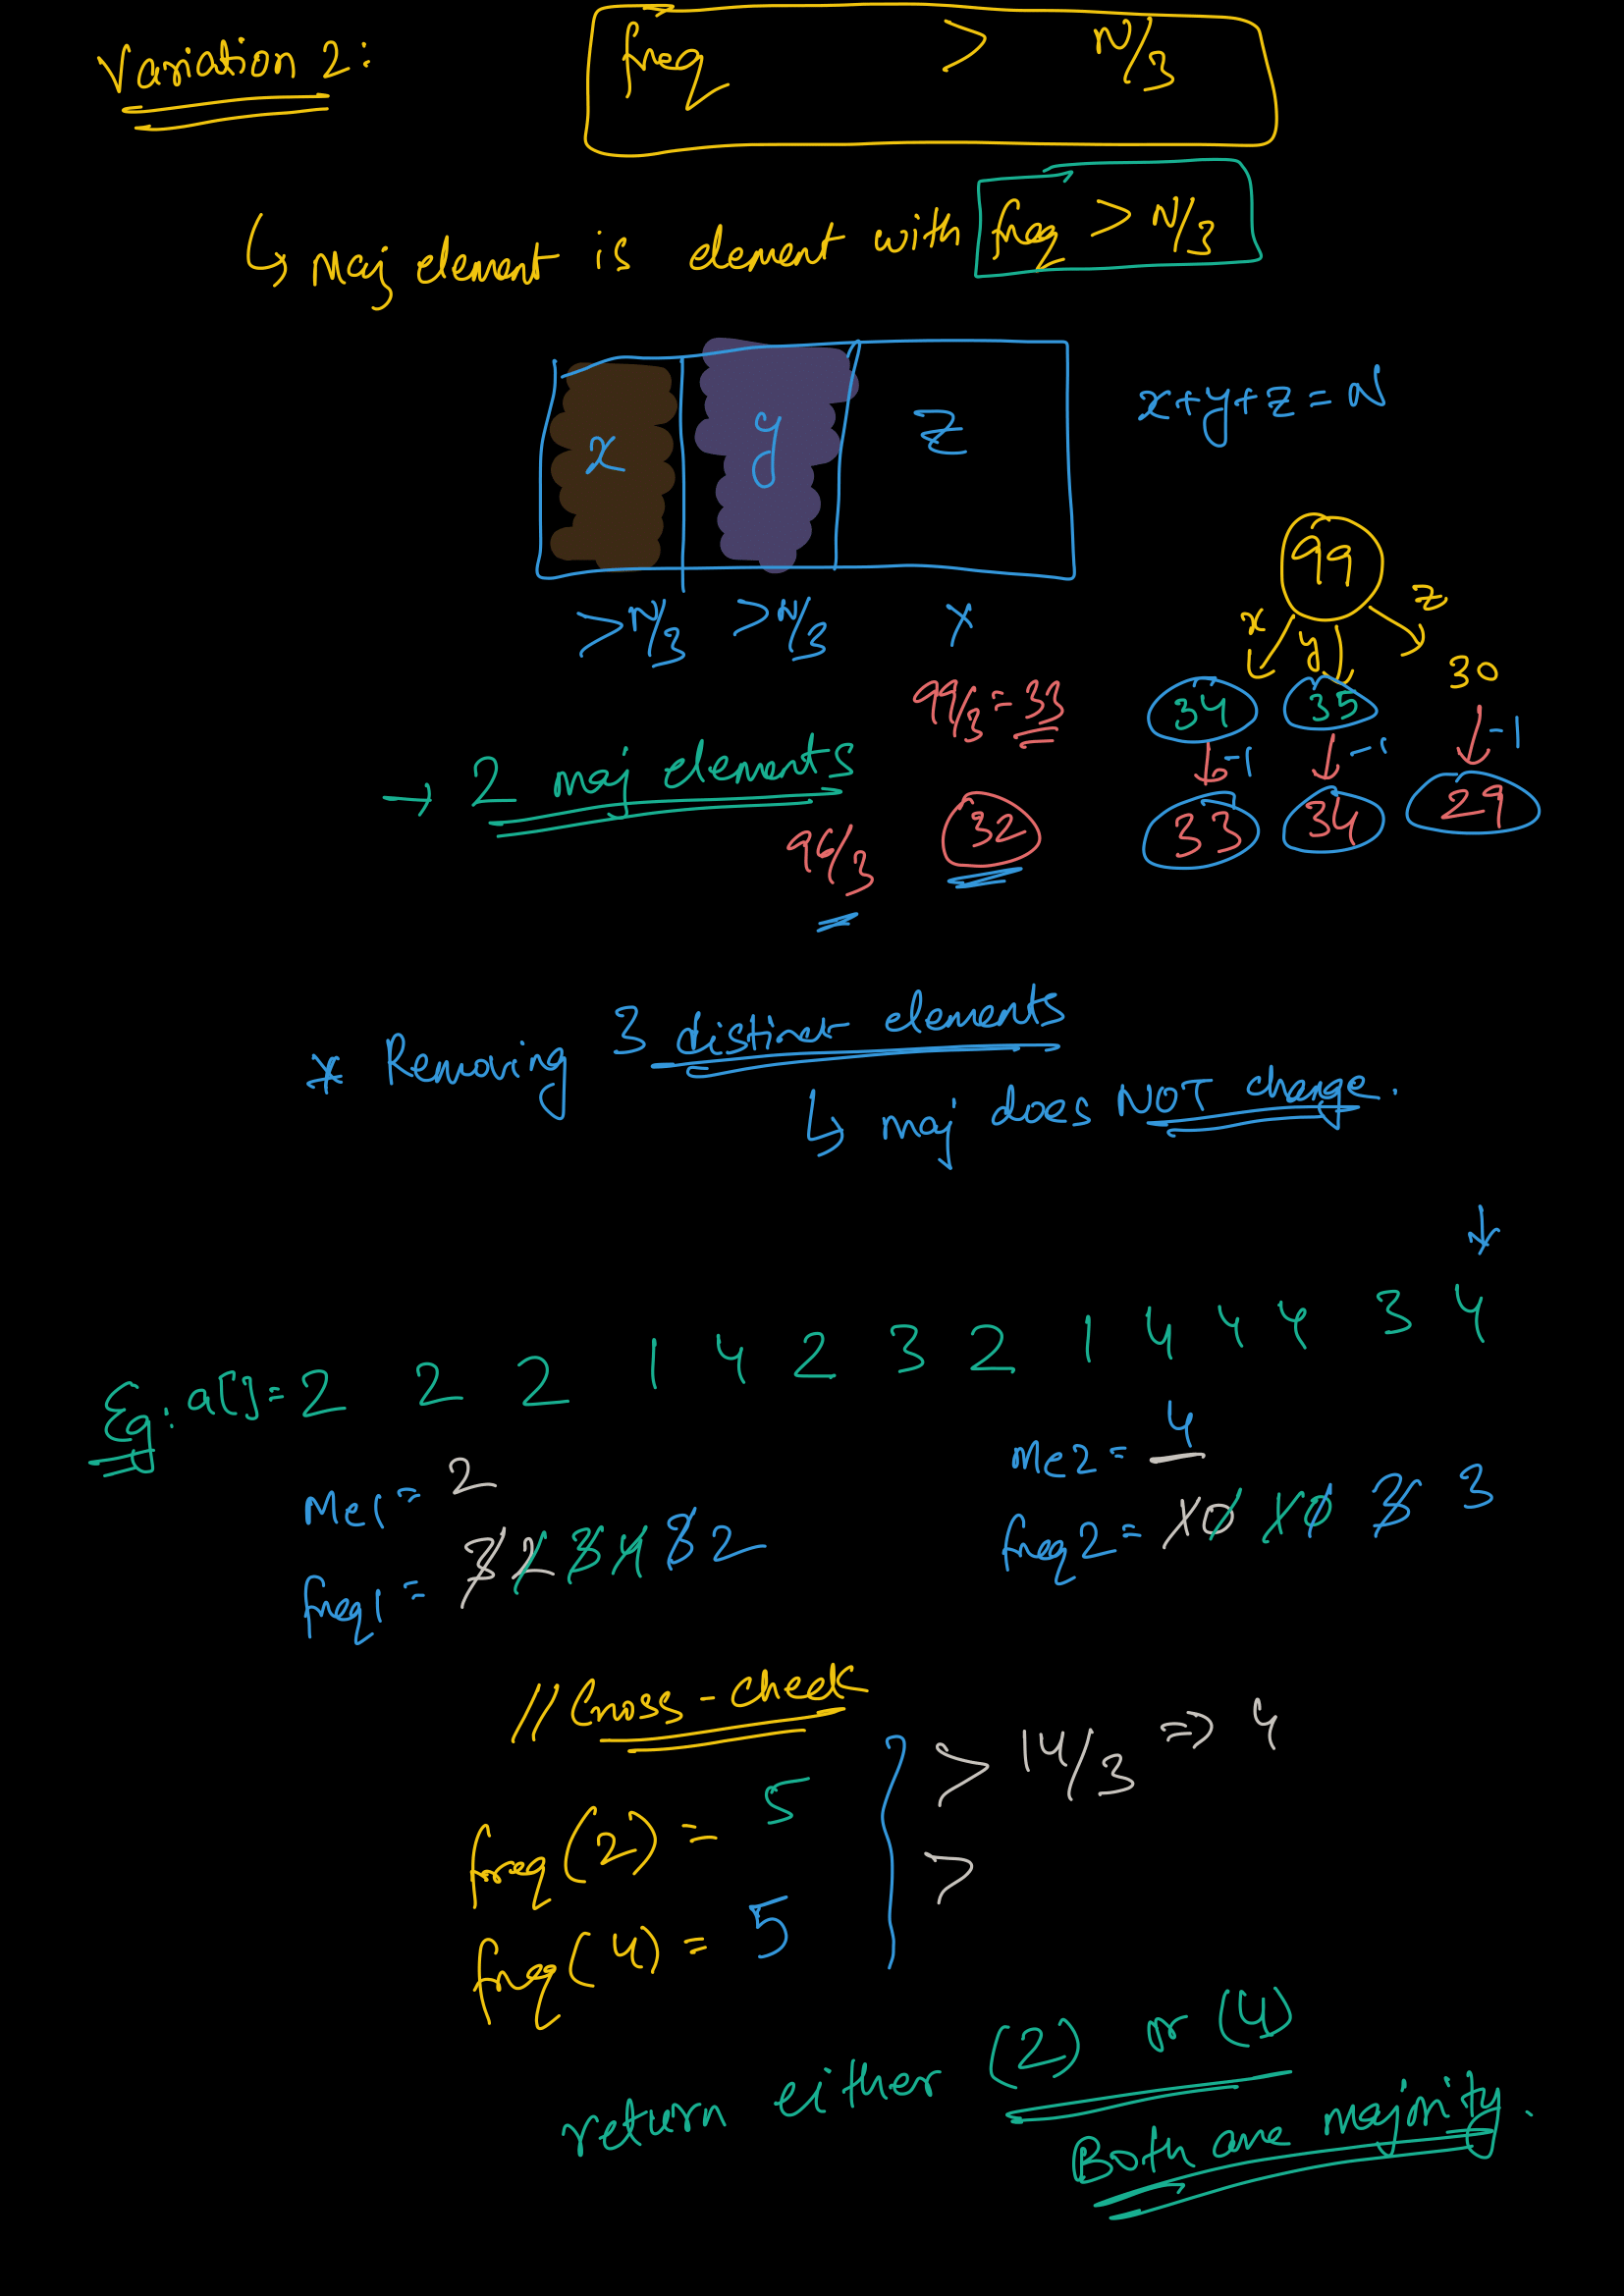 Variation 2:
freq > N/3
↳ Maj element is element with freq > N/3
x y z
x+y+z = N
>N/3 >N/3 X
99
x y z
34 35 30
-1 -1 -1
33 34 29
99/3 = 33
→ 2 maj elements
96/3 32
* Removing 3 distinct elements
↳ maj does NOT change.
↓
Eg: a[] = 2 2 2 1 4 2 3 2 1 4 4 4 3 4
Me1 = 2
Me2 = 4
freq1 = 3 2 3 4 3 2
freq2 = 1 0 1 0 3 3
// Cross-check
freq(2) = 5 > 14/3 => 4
freq(4) = 5 >
return either (2) or (4)
Both are majority.